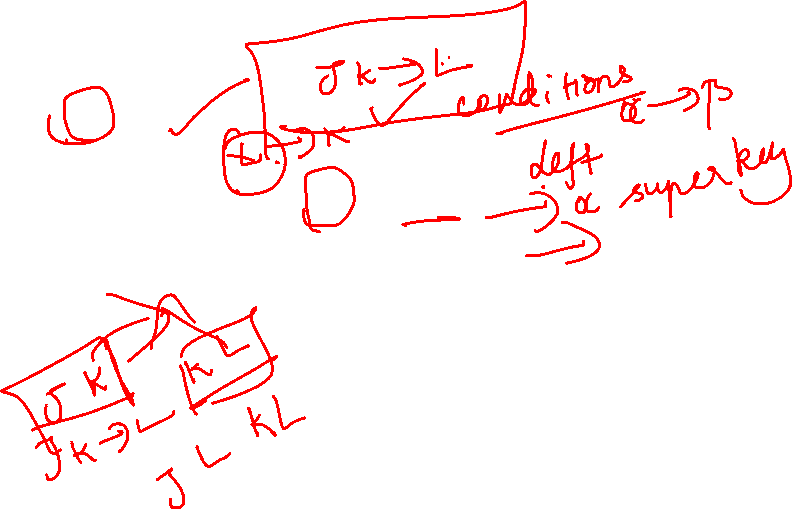 JK → L
conditions
α → β
L → K
left
α superkey
J K
K L
JK → L
J L KL